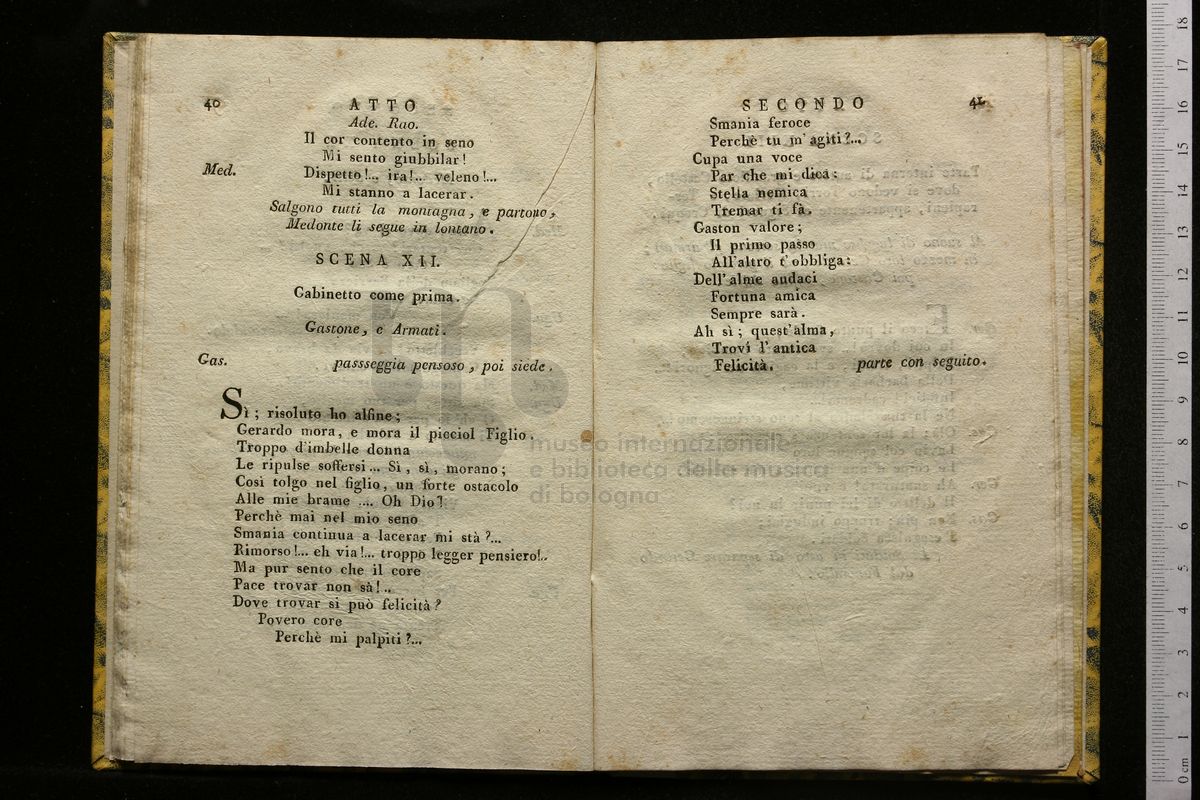 40
ATTO
Ade. Rao.
Il cor contento in seno
Mi sento giubbilar!
Med. Dispetto!... ira!.. veleno!...
Mi stanno a lacerar.
Salgono tutti la montagna, e partono,
Medonte li segue in lontano.
SCENA XII.
Gabinetto come prima.
Gastone, e Armati.
Gas. passseggia pensoso, poi siede.
Sì; risoluto ho alfine;
Gerardo mora, e mora il picciol Figlio.
Troppo d'imbelle donna
Le ripulse soffersi... Sì, sì, morano;
Così tolgo nel figlio, un forte ostacolo
Alle mie brame .... Oh Dio!
Perchè mai nel mio seno
Smania continua a lacerar mi stà?...
Rimorso!... eh via!... troppo legger pensiero!..
Ma pur sento che il core
Pace trovar non sà!..
Dove trovar si può felicità?
Povero core
Perchè mi palpiti?...
SECONDO
41
Smania feroce
Perchè tu m'agiti?...
Cupa una voce
Par che mi dica:
Stella nemica
Tremar ti fà.
Gaston valore;
Il primo passo
All'altro t'obbliga:
Dell'alme audaci
Fortuna amica
Sempre sarà.
Ah sì; quest'alma,
Trovi l'antica
Felicità. parte con seguito.
museo internazionale
e biblioteca della musica
di bologna
0 cm 1 2 3 4 5 6 7 8 9 10 11 12 13 14 15 16 17 18